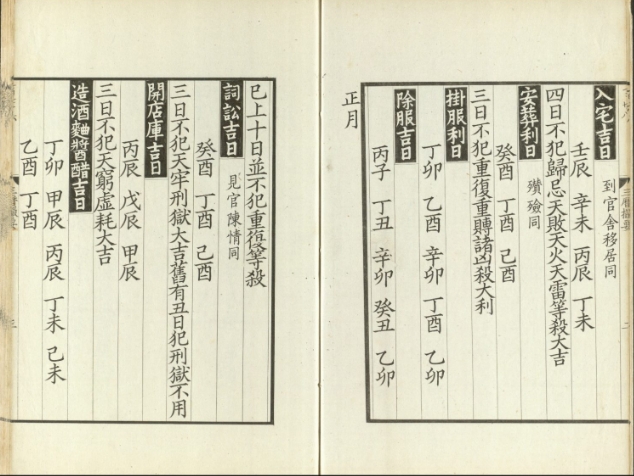 入宅吉日 到官舍移居同
壬辰 辛未 丙辰 丁未
四日不犯歸忌天敗天火天雷等殺大吉
安葬利日 殯殮同
癸酉 丁酉 己酉
三日不犯重復重賻諸凶殺大利
掛服利日
丁卯 乙酉 辛卯 丁酉 乙卯
除服吉日
丙子 丁丑 辛卯 癸丑 乙卯
正月
已上十日並不犯重復等殺
詞訟吉日 見官陳情同
癸酉 丁酉 己酉
三日不犯天牢刑獄大吉舊有丑日犯刑獄不用
開店庫吉日
丙辰 戊辰 甲辰
三日不犯天窮虛耗大吉
造酒麯醬醋吉日
丁卯 甲辰 丙辰 丁未 己未
乙酉 丁酉